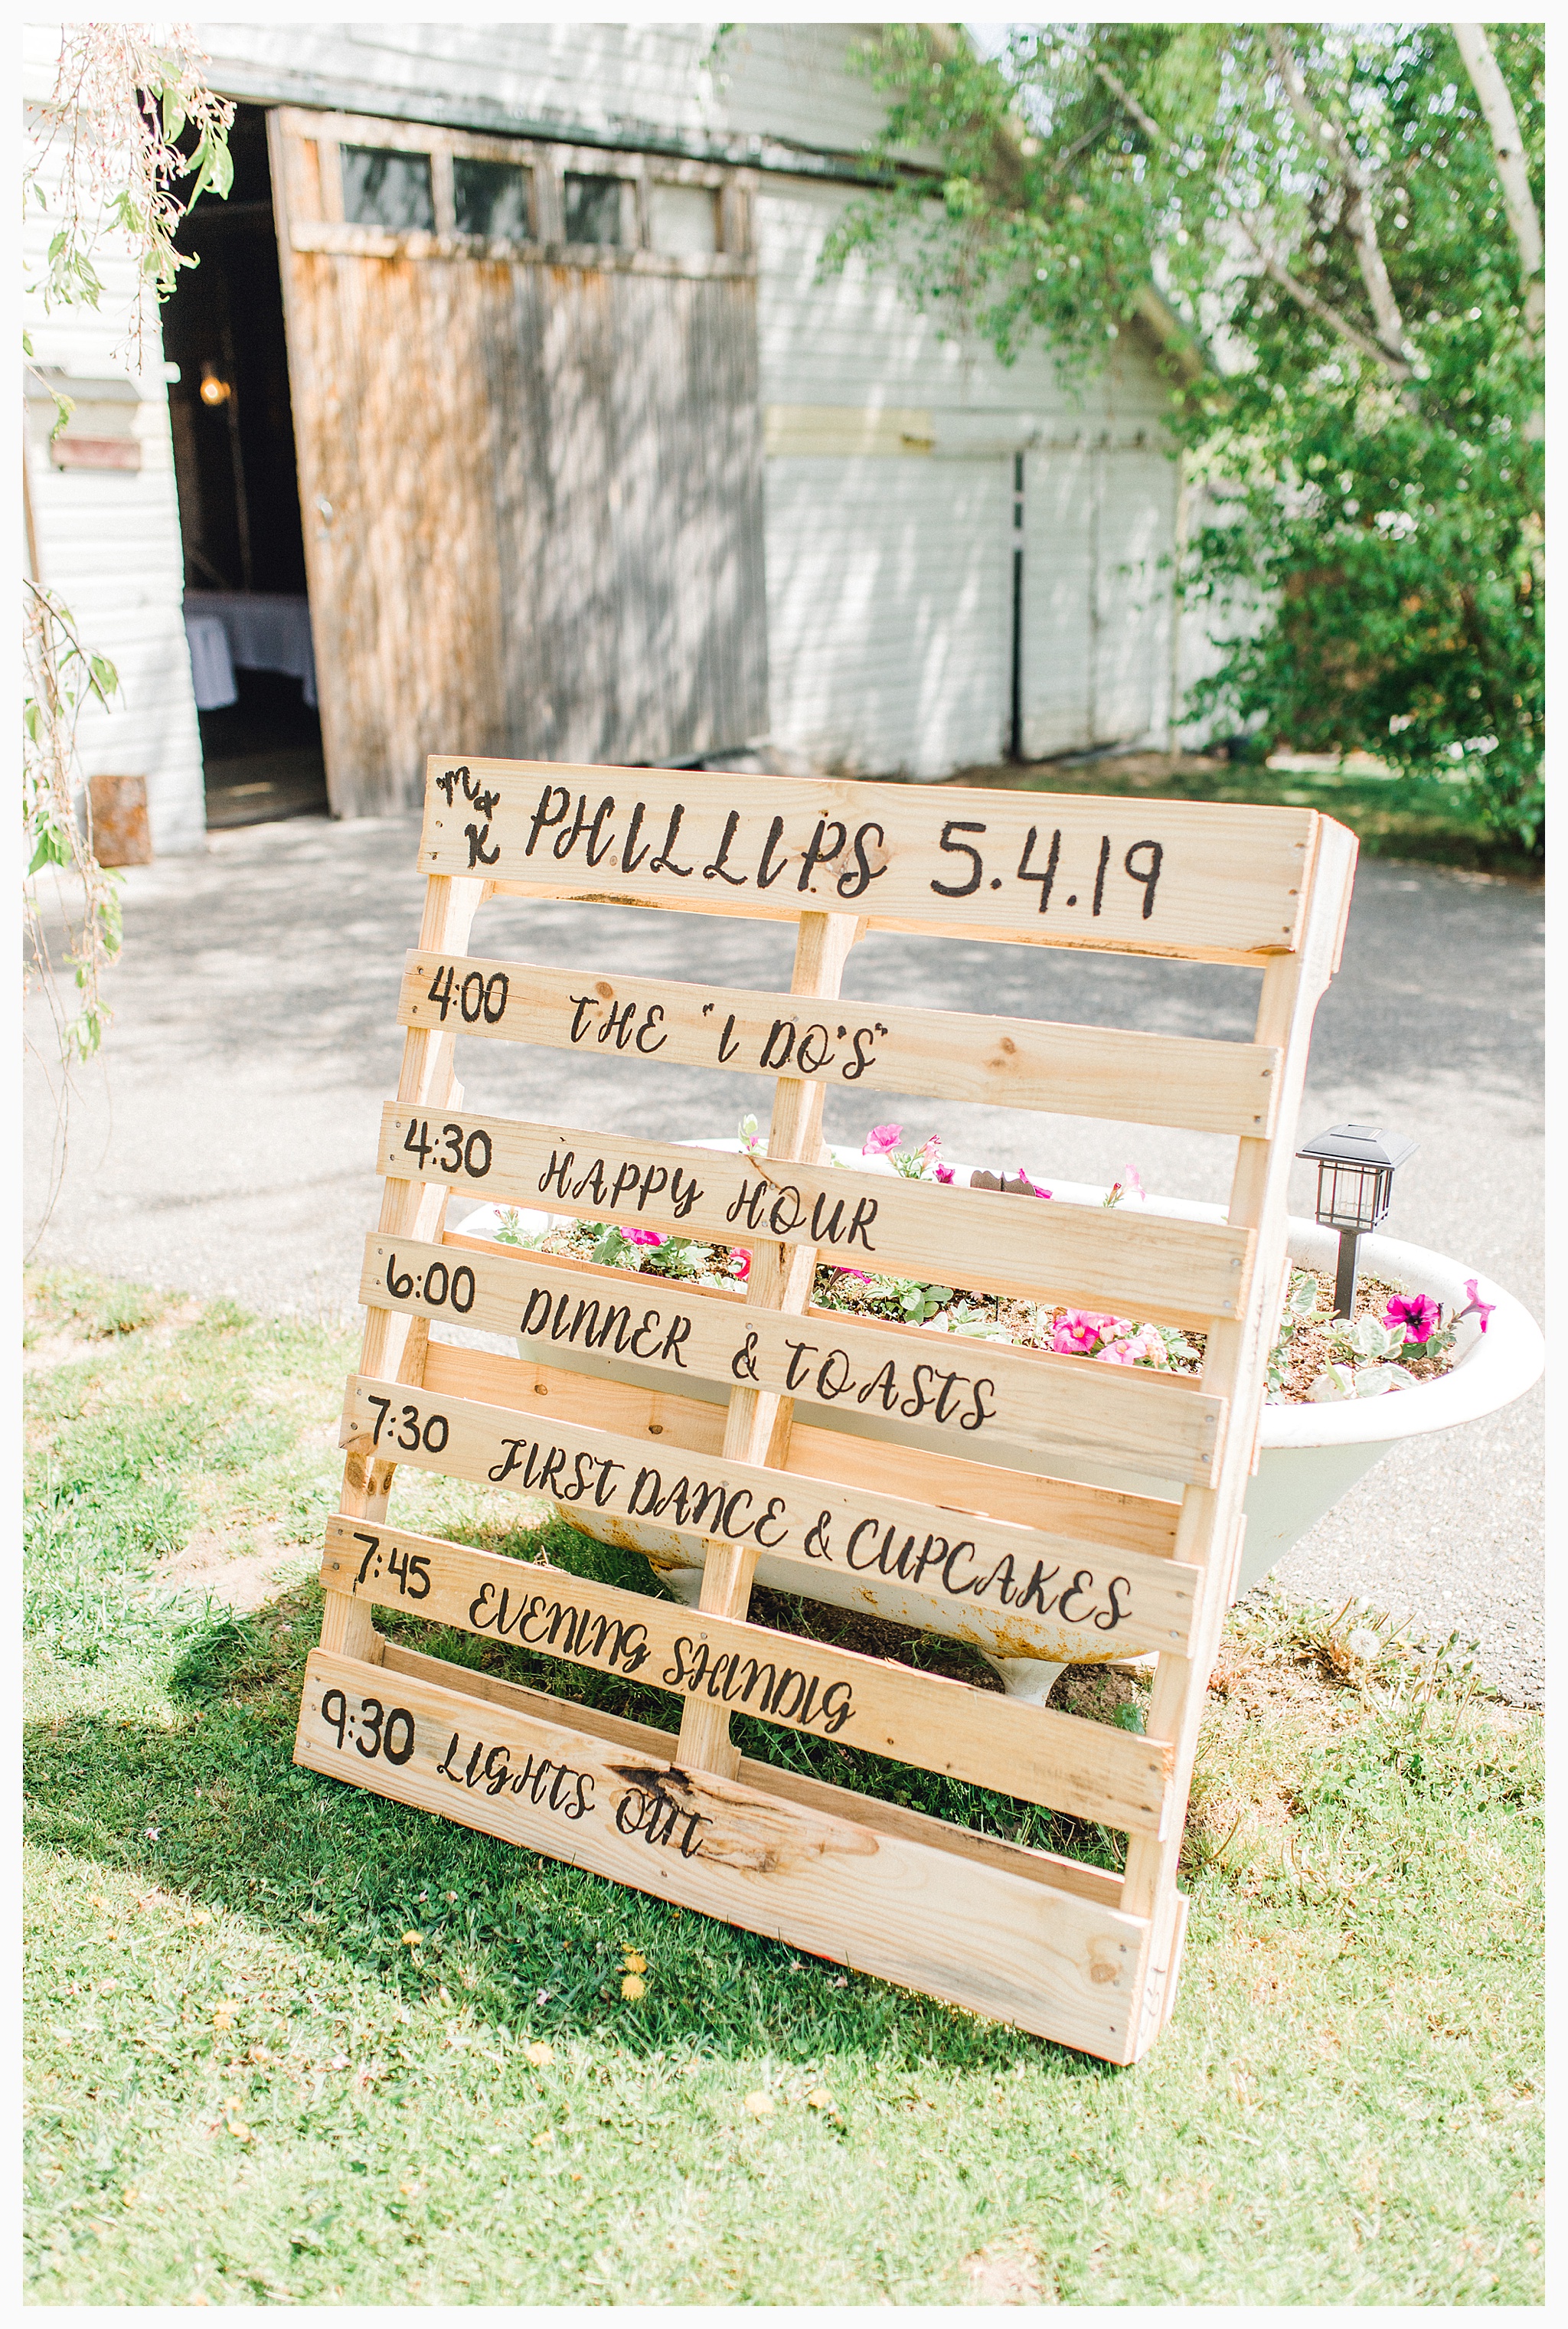 M &
K PHILLIPS 5.4.19
4:00 THE "I DO'S"
4:30 HAPPY HOUR
6:00 DINNER & TOASTS
7:30 FIRST DANCE & CUPCAKES
7:45 EVENING SHINDIG
9:30 LIGHTS OUT